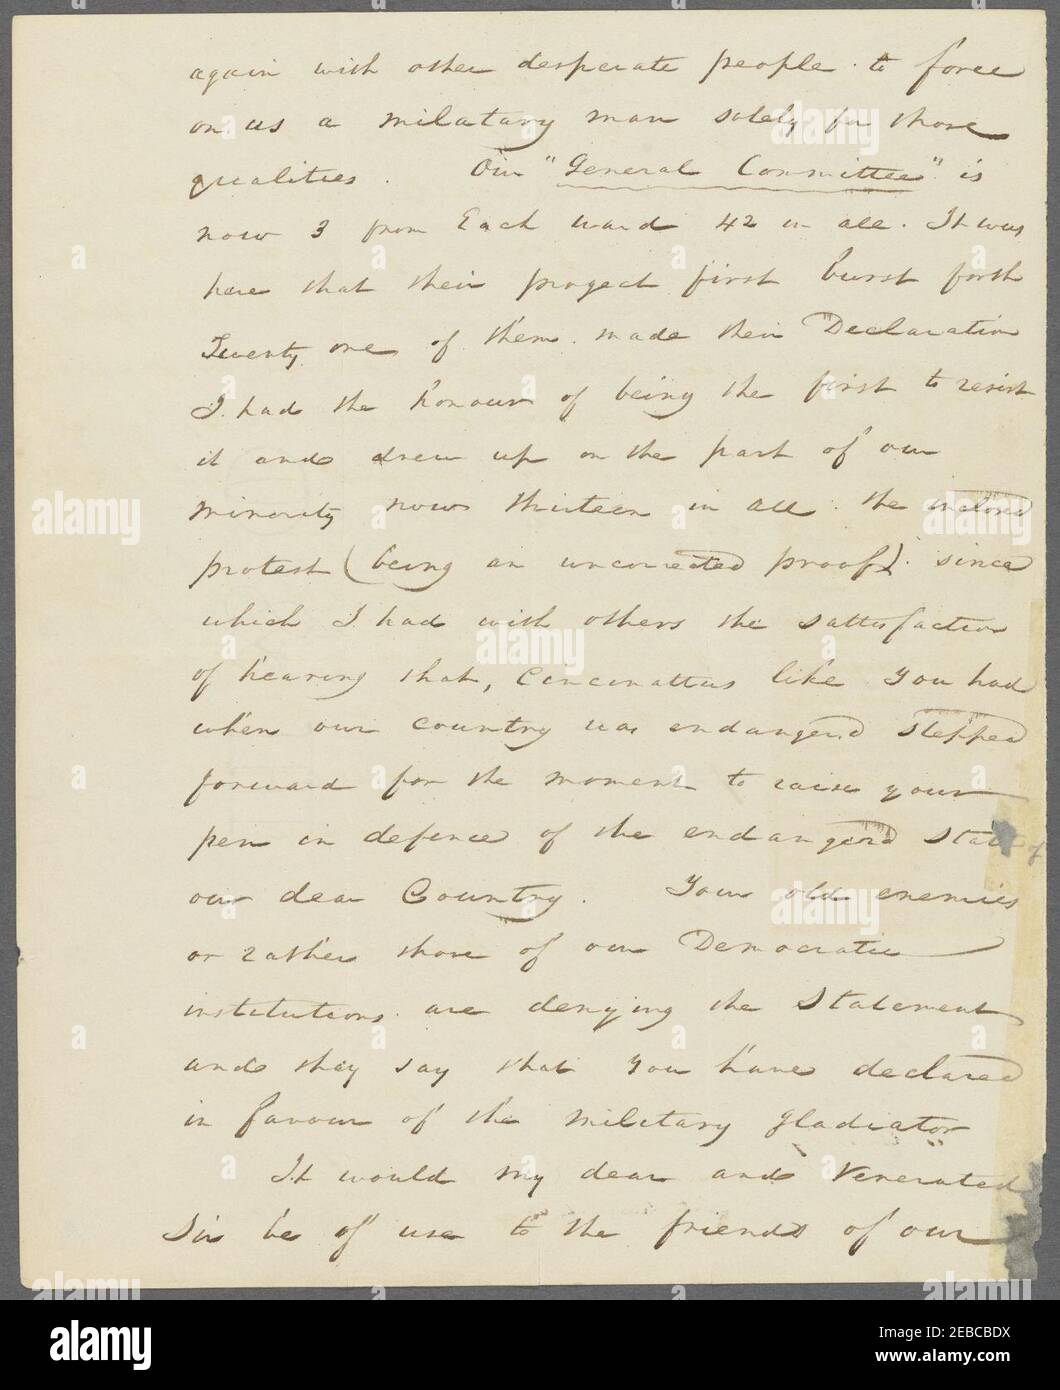 again with other desperate people. to force
on us a milatary man solely for those
qualities. Our "General Committee" is
now 3 from Each ward 42 in all. It was
here that their project first burst forth
Twenty one of them. made their Declaration
I had the honour of being the first to resist
it and drew up on the part of our
minority now thirteen in all. the inclosed
protest (being an uncorrected proof). since
which I had with others the sattisfaction
of hearing that, Cincinattus like you had
when our country was endangerd stepped
forward for the moment to raise your
pen in defence of the endangerd State of
our dear Country. Your old enemies
or rather those of our Democratic
institutions. are denying the Statement
and they say that you have declared
in favour of the military gladiator
It would my dear and Venerated
Sir be of use to the friends of our
alamy
Image ID: 2EBCBDX
www.alamy.com